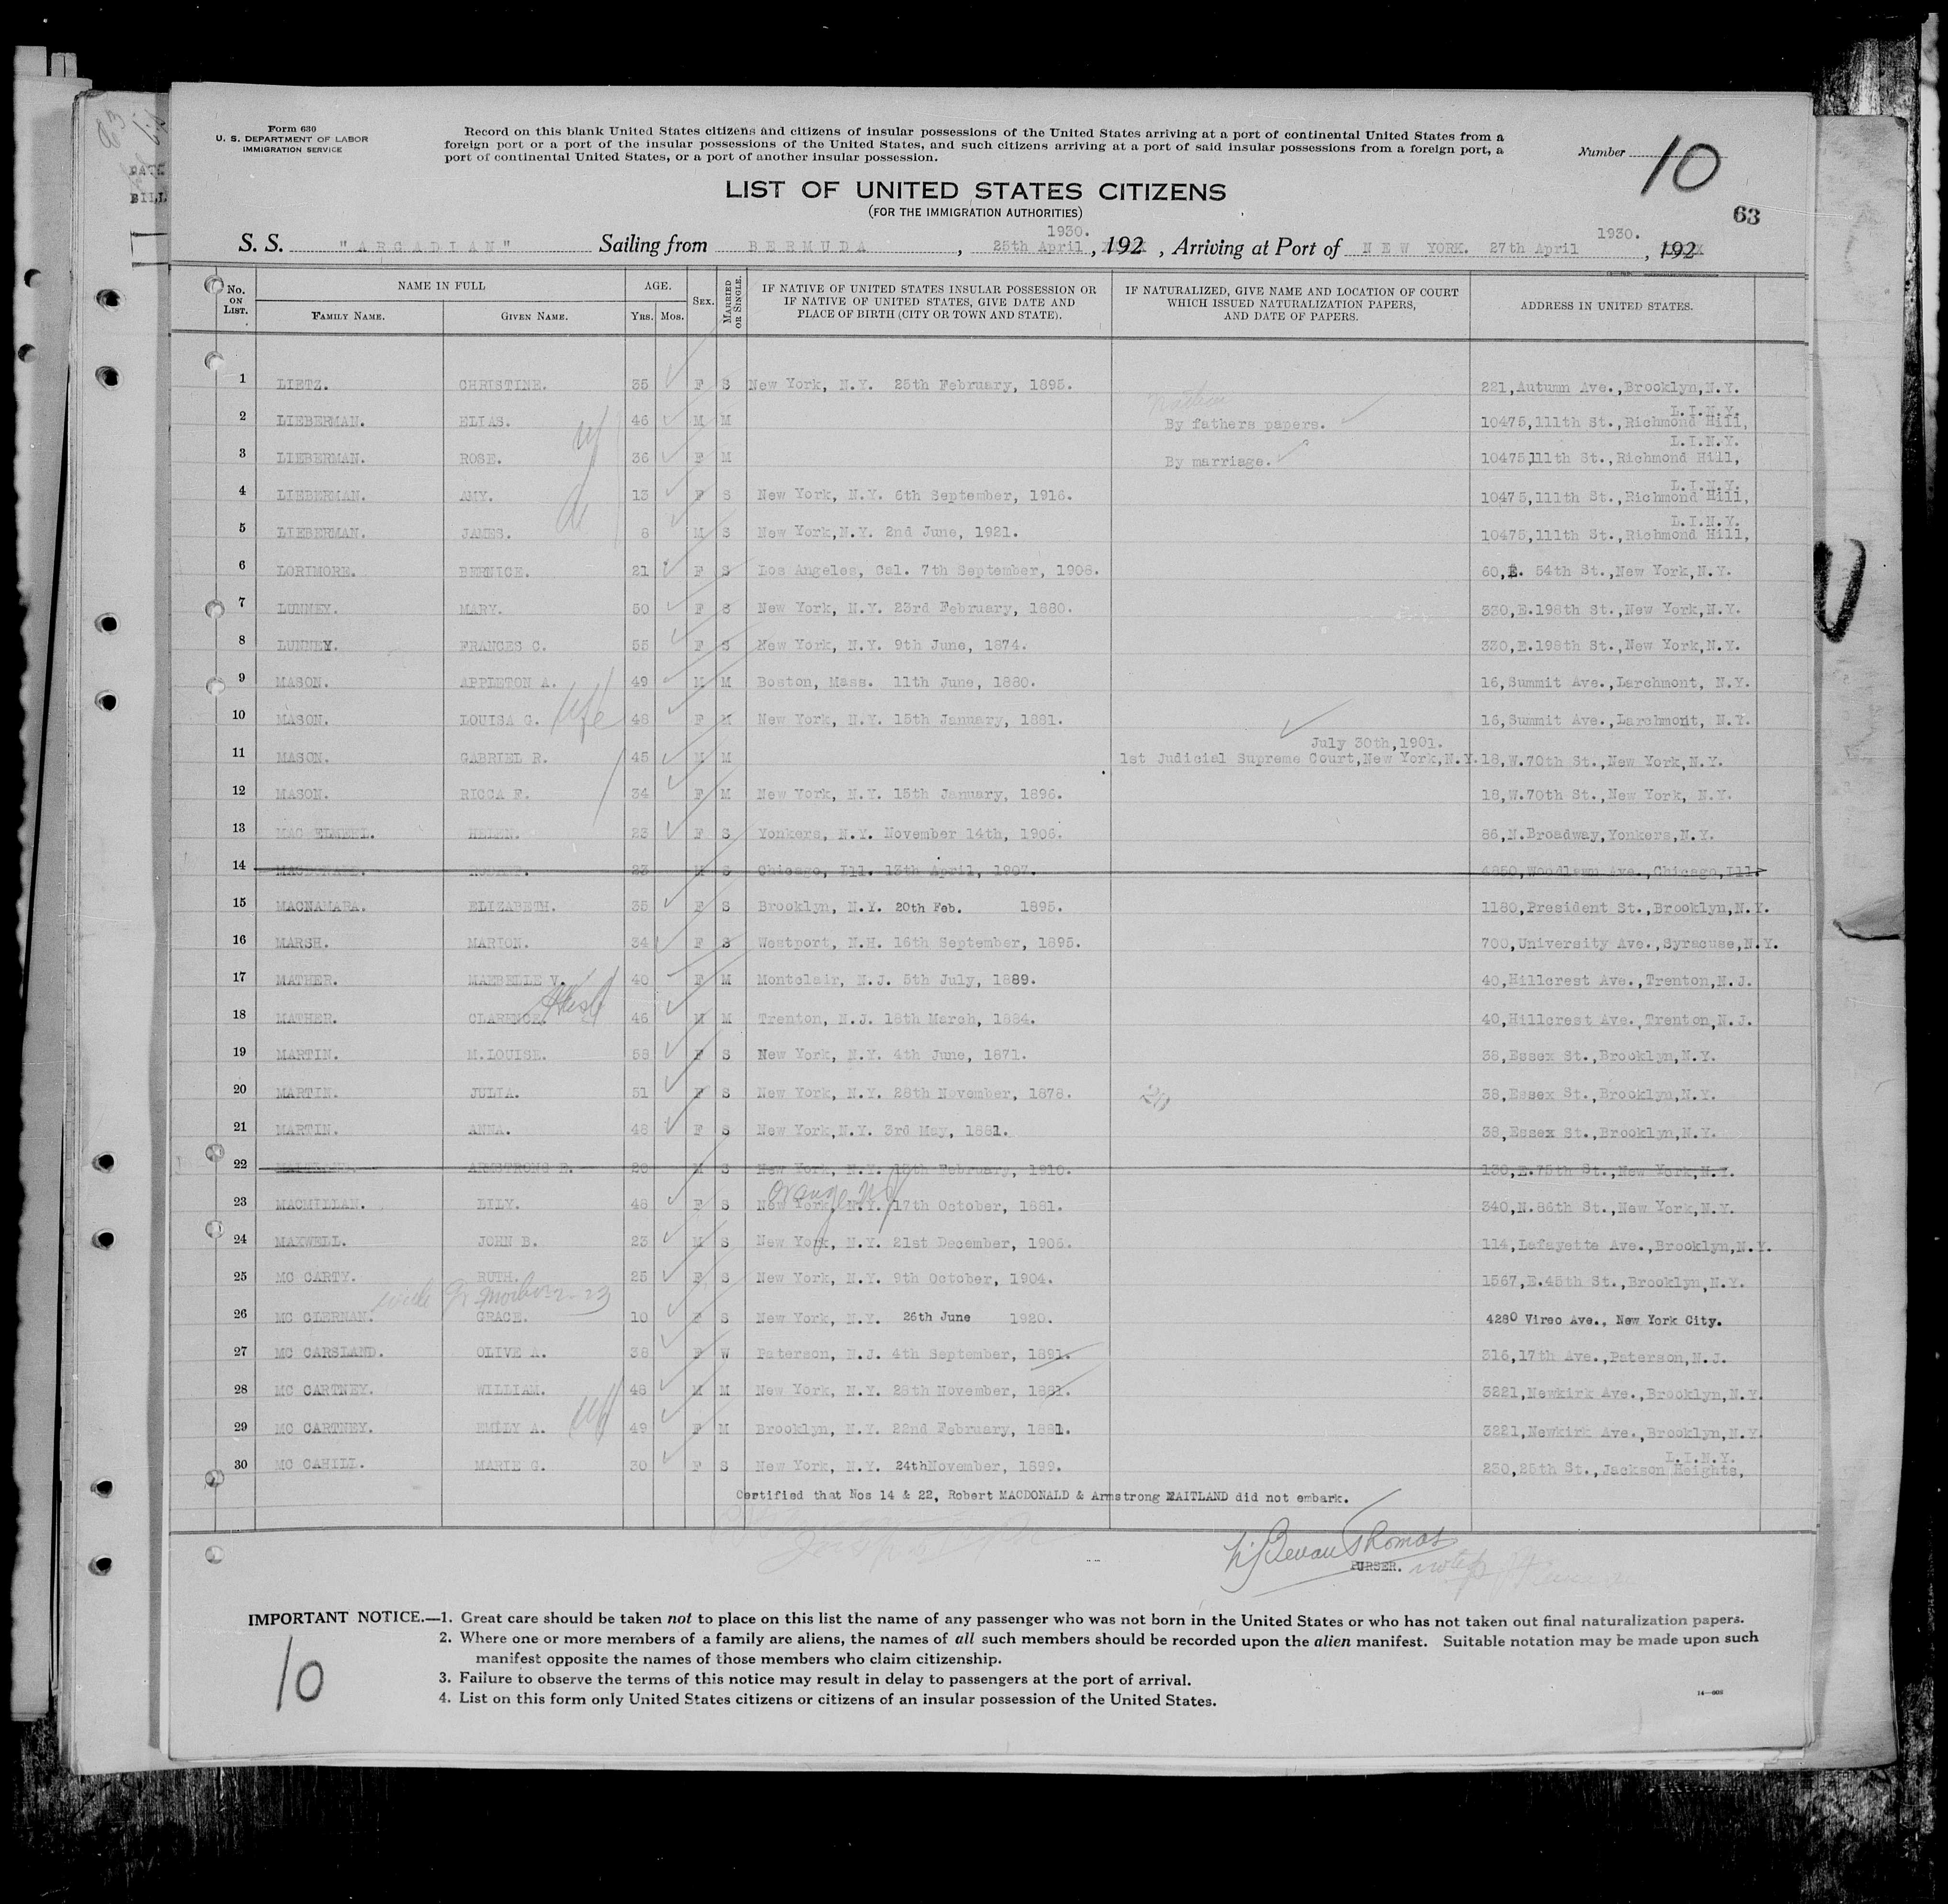 Form 630
U. S. DEPARTMENT OF LABOR
IMMIGRATION SERVICE
Record on this blank United States citizens and citizens of insular possessions of the United States arriving at a port of continental United States from a
foreign port or a port of the insular possessions of the United States, and such citizens arriving at a port of said insular possessions from a foreign port, a
port of continental United States, or a port of another insular possession.
Number 10
LIST OF UNITED STATES CITIZENS
(FOR THE IMMIGRATION AUTHORITIES)
63
S. S. "ARCADIAN" Sailing from BERMUDA, 25th April 1930., 192 , Arriving at Port of NEW YORK. 27th April 1930., 192
No. ON LIST. NAME IN FULL FAMILY NAME. GIVEN NAME. AGE. YRS. MOS. SEX. MARRIED OR SINGLE. IF NATIVE OF UNITED STATES INSULAR POSSESSION OR IF NATIVE OF UNITED STATES, GIVE DATE AND PLACE OF BIRTH (CITY OR TOWN AND STATE). IF NATURALIZED, GIVE NAME AND LOCATION OF COURT WHICH ISSUED NATURALIZATION PAPERS, AND DATE OF PAPERS. ADDRESS IN UNITED STATES.
1 LIETZ. CHRISTINE. 35 F S New York, N.Y. 25th February, 1895. 221,Autumn Ave.,Brooklyn,N.Y.
2 LIEBERMAN. ELIAS. 46 M M By fathers papers. 10475,111th St.,Richmond Hill, L.I.N.Y.
3 LIEBERMAN. ROSE. 36 F M By marriage. 10475,111th St.,Richmond Hill, L.I.N.Y.
4 LIEBERMAN. AMY. 13 F S New York, N.Y. 6th September, 1916. 10475,111th St.,Richmond Hill, L.I.N.Y.
5 LIEBERMAN. JAMES. 8 M S New York,N.Y. 2nd June, 1921. 10475,111th St.,Richmond Hill, L.I.N.Y.
6 LORIMORE. BERNICE. 21 F S Los Angeles, Cal. 7th September, 1908. 60,E. 54th St.,New York,N.Y.
7 LUNNEY. MARY. 50 F S New York, N.Y. 23rd February, 1880. 330,E.198th St.,New York,N.Y.
8 LUNNEY. FRANCES C. 55 F S New York, N.Y. 9th June, 1874. 330,E.198th St.,New York,N.Y.
9 MASON. APPLETON A. 49 M M Boston, Mass. 11th June, 1880. 16,Summit Ave.,Larchmont, N.Y.
10 MASON. LOUISA G. wife 48 F M New York, N.Y. 15th January, 1881. 16,Summit Ave.,Larchmont, N.Y.
11 MASON. GABRIEL R. 45 M M July 30th,1901. 1st Judicial Supreme Court,New York,N.Y. 18,W.70th St.,New York,N.Y.
12 MASON. RICCA F. 34 F M New York, N.Y. 15th January, 1896. 18,W.70th St.,New York, N.Y.
13 HELEN. 23 F S Yonkers, N.Y. November 14th, 1906. 86,N.Broadway,Yonkers,N.Y.
14 MACDONALD. ROBERT. 23 M S Chicago, Ill. 13th April, 1907. 4850,Woodlawn Ave.,Chicago,Ill.
15 MACNAMARA. ELIZABETH. 35 F S Brooklyn, N.Y. 20th Feb. 1895. 1180,President St.,Brooklyn,N.Y.
16 MARSH. MARION. 34 F S Westport, N.H. 16th September, 1895. 700,University Ave.,Syracuse,N.Y.
17 MATHER. MAEBELLE V. 40 F M Montclair, N.J. 5th July, 1889. 40,Hillcrest Ave.,Trenton,N.J.
18 MATHER. CLARENCE. 46 M M Trenton, N.J. 18th March, 1884. 40,Hillcrest Ave.,Trenton,N.J.
19 MARTIN. M.LOUISE. 58 F S New York, N.Y. 4th June, 1871. 38,Essex St.,Brooklyn,N.Y.
20 MARTIN. JULIA. 51 F S New York, N.Y. 28th November, 1878. 38,Essex St.,Brooklyn,N.Y.
21 MARTIN. ANNA. 48 F S New York,N.Y. 3rd May, 1881. 38,Essex St.,Brooklyn,N.Y.
22 MAITLAND. ARMSTRONG E. 20 M S New York, N.Y. February, 1910. 130,E.75th St.,New York,N.Y.
23 MACMILLAN. LILY. 48 F S Orange NJ New York, N.Y. 17th October, 1881. 340,N.86th St.,New York,N.Y.
24 MAXWELL. JOHN B. 23 M S New York, N.Y. 21st December, 1906. 114,Lafayette Ave.,Brooklyn,N.Y.
25 MC CARTY. RUTH. 25 F S New York, N.Y. 9th October, 1904. 1567,E.45th St.,Brooklyn,N.Y.
26 MC CIERNAN. GRACE. 10 F S New York, N.Y. 26th June 1920. 4280 Vireo Ave., New York City.
27 MC CARSLAND. OLIVE A. 38 F W Paterson, N.J. 4th September, 1891. 316,17th Ave.,Paterson,N.J.
28 MC CARTNEY. WILLIAM. 48 M M New York, N.Y. 28th November, 1881. 3221,Newkirk Ave.,Brooklyn,N.Y.
29 MC CARTNEY. EMILY A. 49 F M Brooklyn, N.Y. 22nd February, 1881. 3221,Newkirk Ave.,Brooklyn,N.Y.
30 MC CAHILL. MARIE G. 30 F S New York, N.Y. 24thNovember, 1899. 230,25th St.,Jackson Heights, L.I.N.Y.
Certified that Nos 14 & 22, Robert MACDONALD & Armstrong MAITLAND did not embark.
Bevan Thomas
PURSER.
IMPORTANT NOTICE.—1. Great care should be taken not to place on this list the name of any passenger who was not born in the United States or who has not taken out final naturalization papers.
2. Where one or more members of a family are aliens, the names of all such members should be recorded upon the alien manifest. Suitable notation may be made upon such
manifest opposite the names of those members who claim citizenship.
3. Failure to observe the terms of this notice may result in delay to passengers at the port of arrival.
4. List on this form only United States citizens or citizens of an insular possession of the United States.
10
14—608